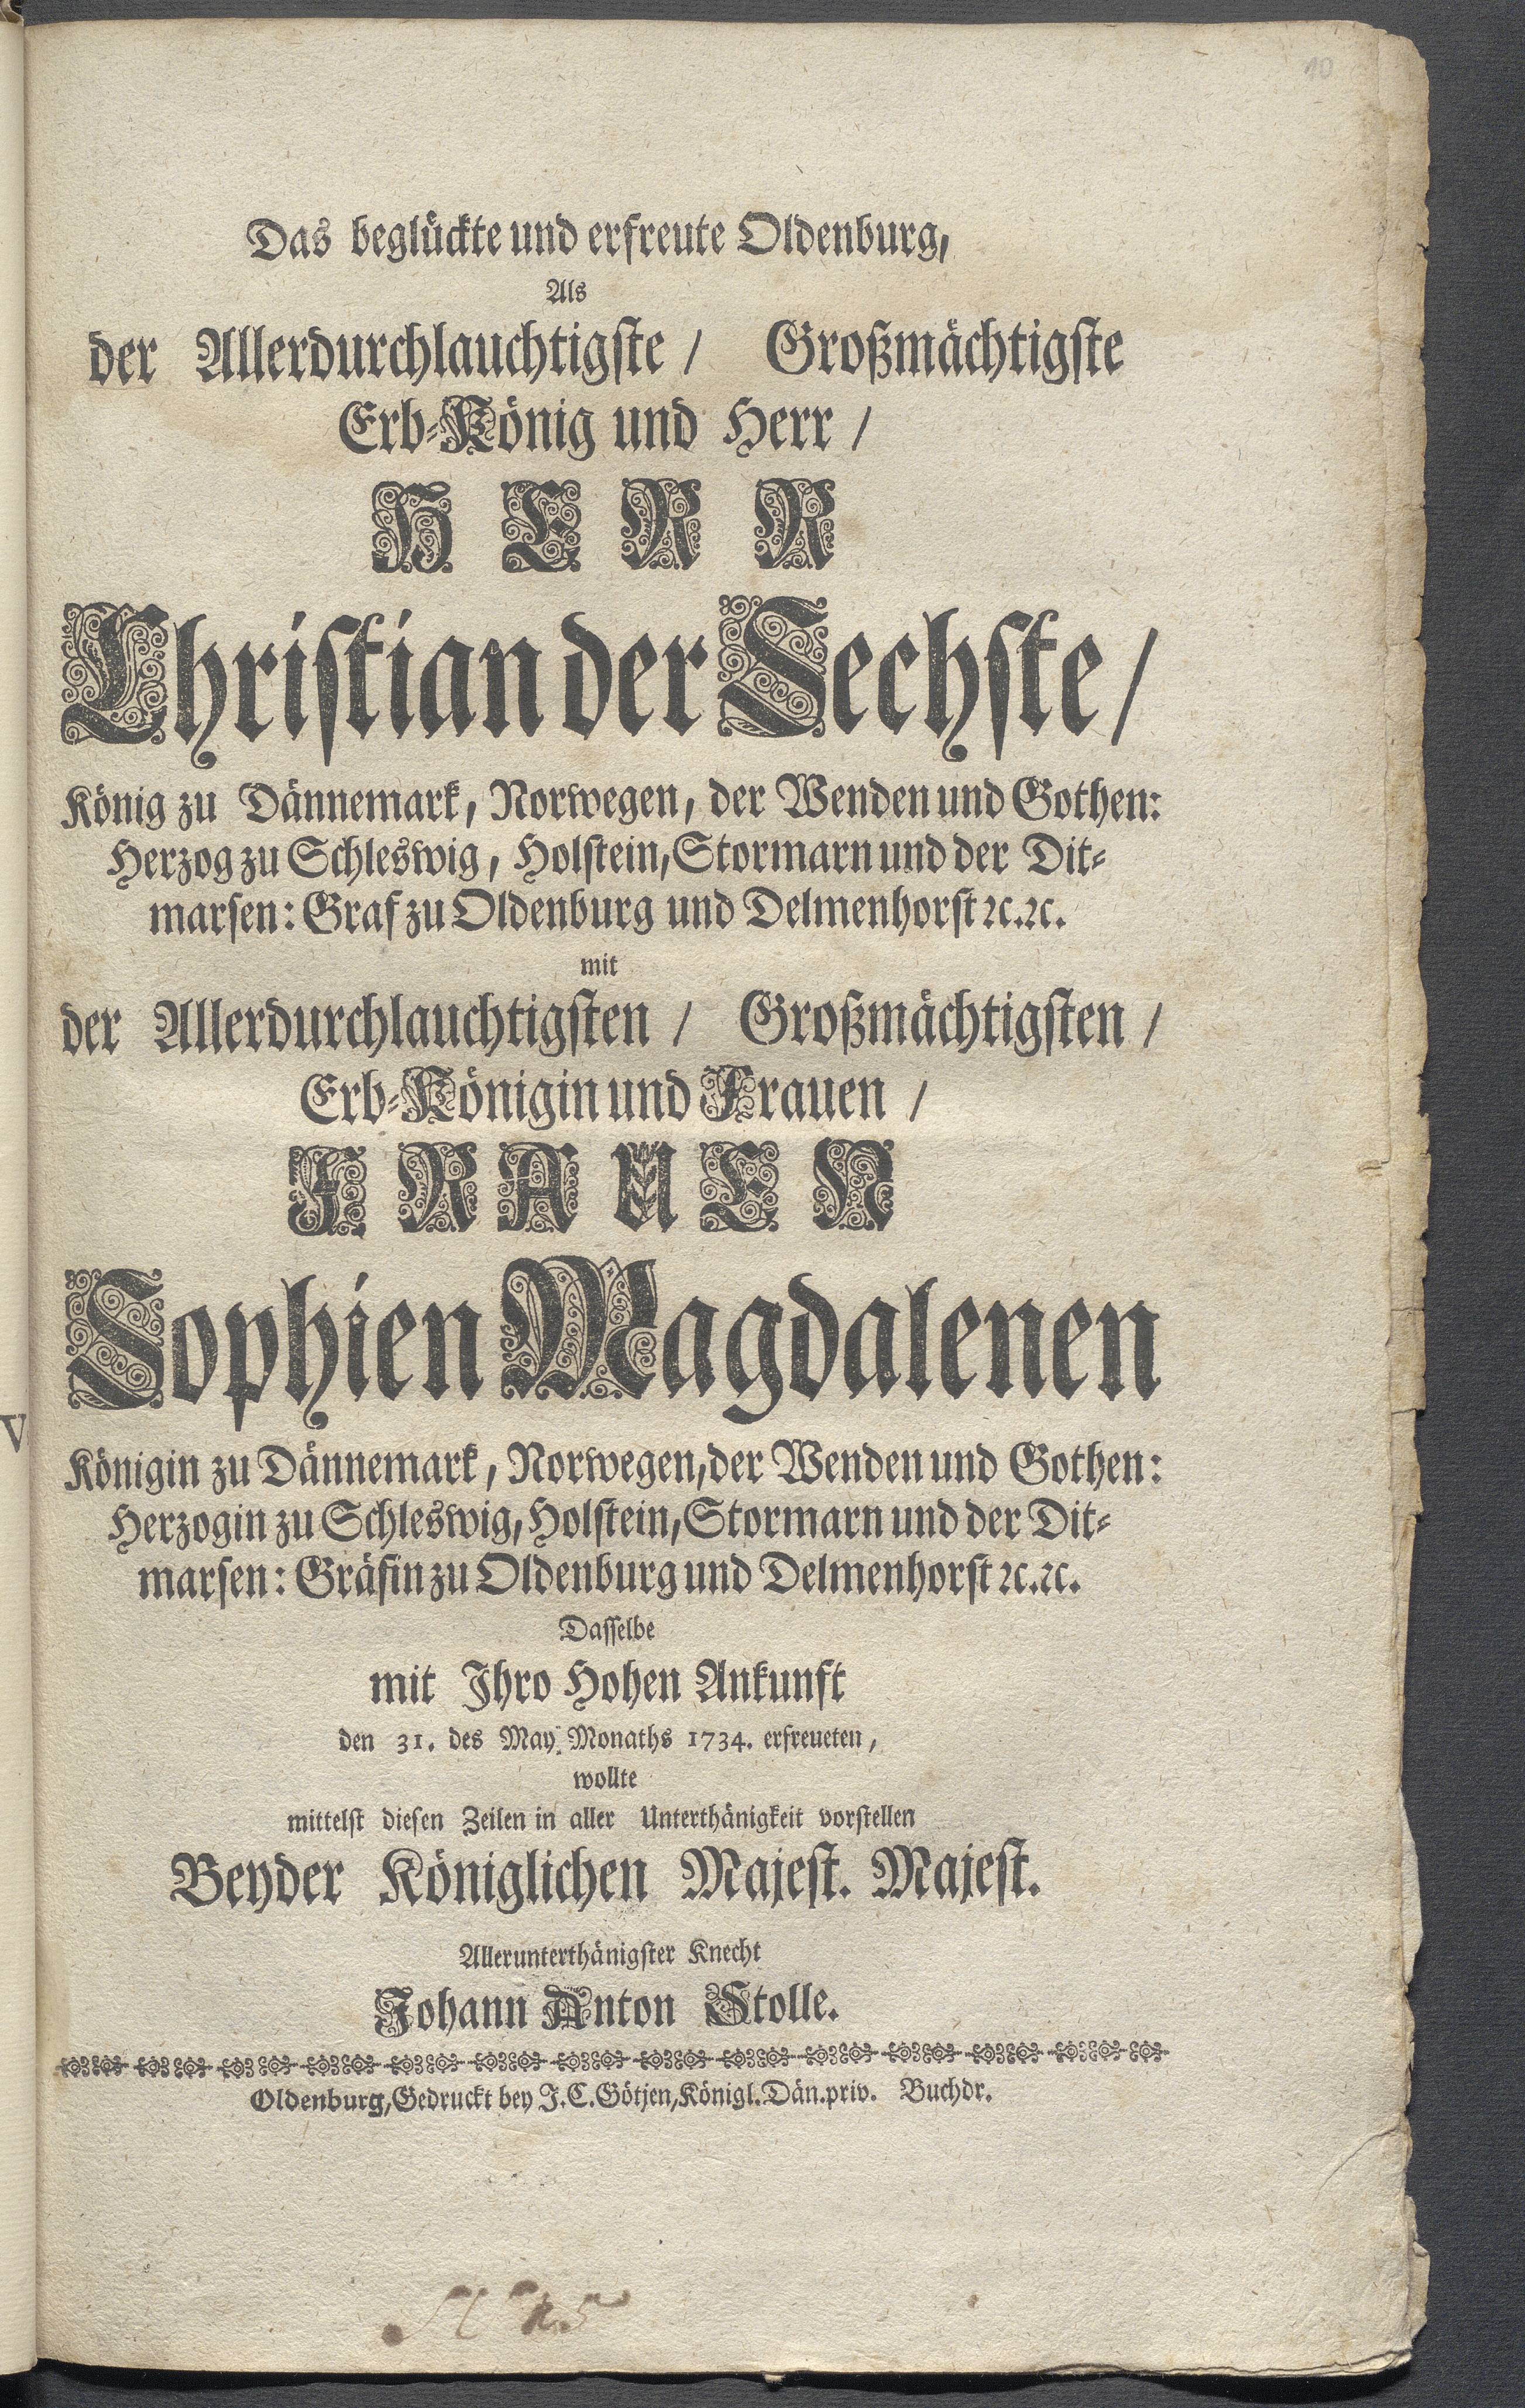 10
Das beglückte und erfreute Oldenburg,
Als
der Allerdurchlauchtigste / Großmächtigste
Erb-König und Herr /
HERR
Christian der Sechste /
König zu Dännemark, Norwegen, der Wenden und Gothen:
Herzog zu Schleswig, Holstein, Stormarn und der Dit-
marsen: Graf zu Oldenburg und Delmenhorst ꝛc. ꝛc.
mit
der Allerdurchlauchtigsten / Großmächtigsten /
Erb-Königin und Frauen /
FRAUEN
Sophien Magdalenen
V
Königin zu Dännemark, Norwegen, der Wenden und Gothen:
Herzogin zu Schleswig, Holstein, Stormarn und der Dit-
marsen: Gräfin zu Oldenburg und Delmenhorst ꝛc. ꝛc.
Dasselbe
mit Ihro Hohen Ankunft
den 31. des May-Monaths 1734. erfreueten,
wollte
mittelst diesen Zeilen in aller Unterthänigkeit vorstellen
Beyder Königlichen Majest. Majest.
Allerunterthänigster Knecht
Johann Anton Stolle.
Oldenburg, Gedruckt bey J. C. Götjen, Königl. Dän. priv. Buchdr.